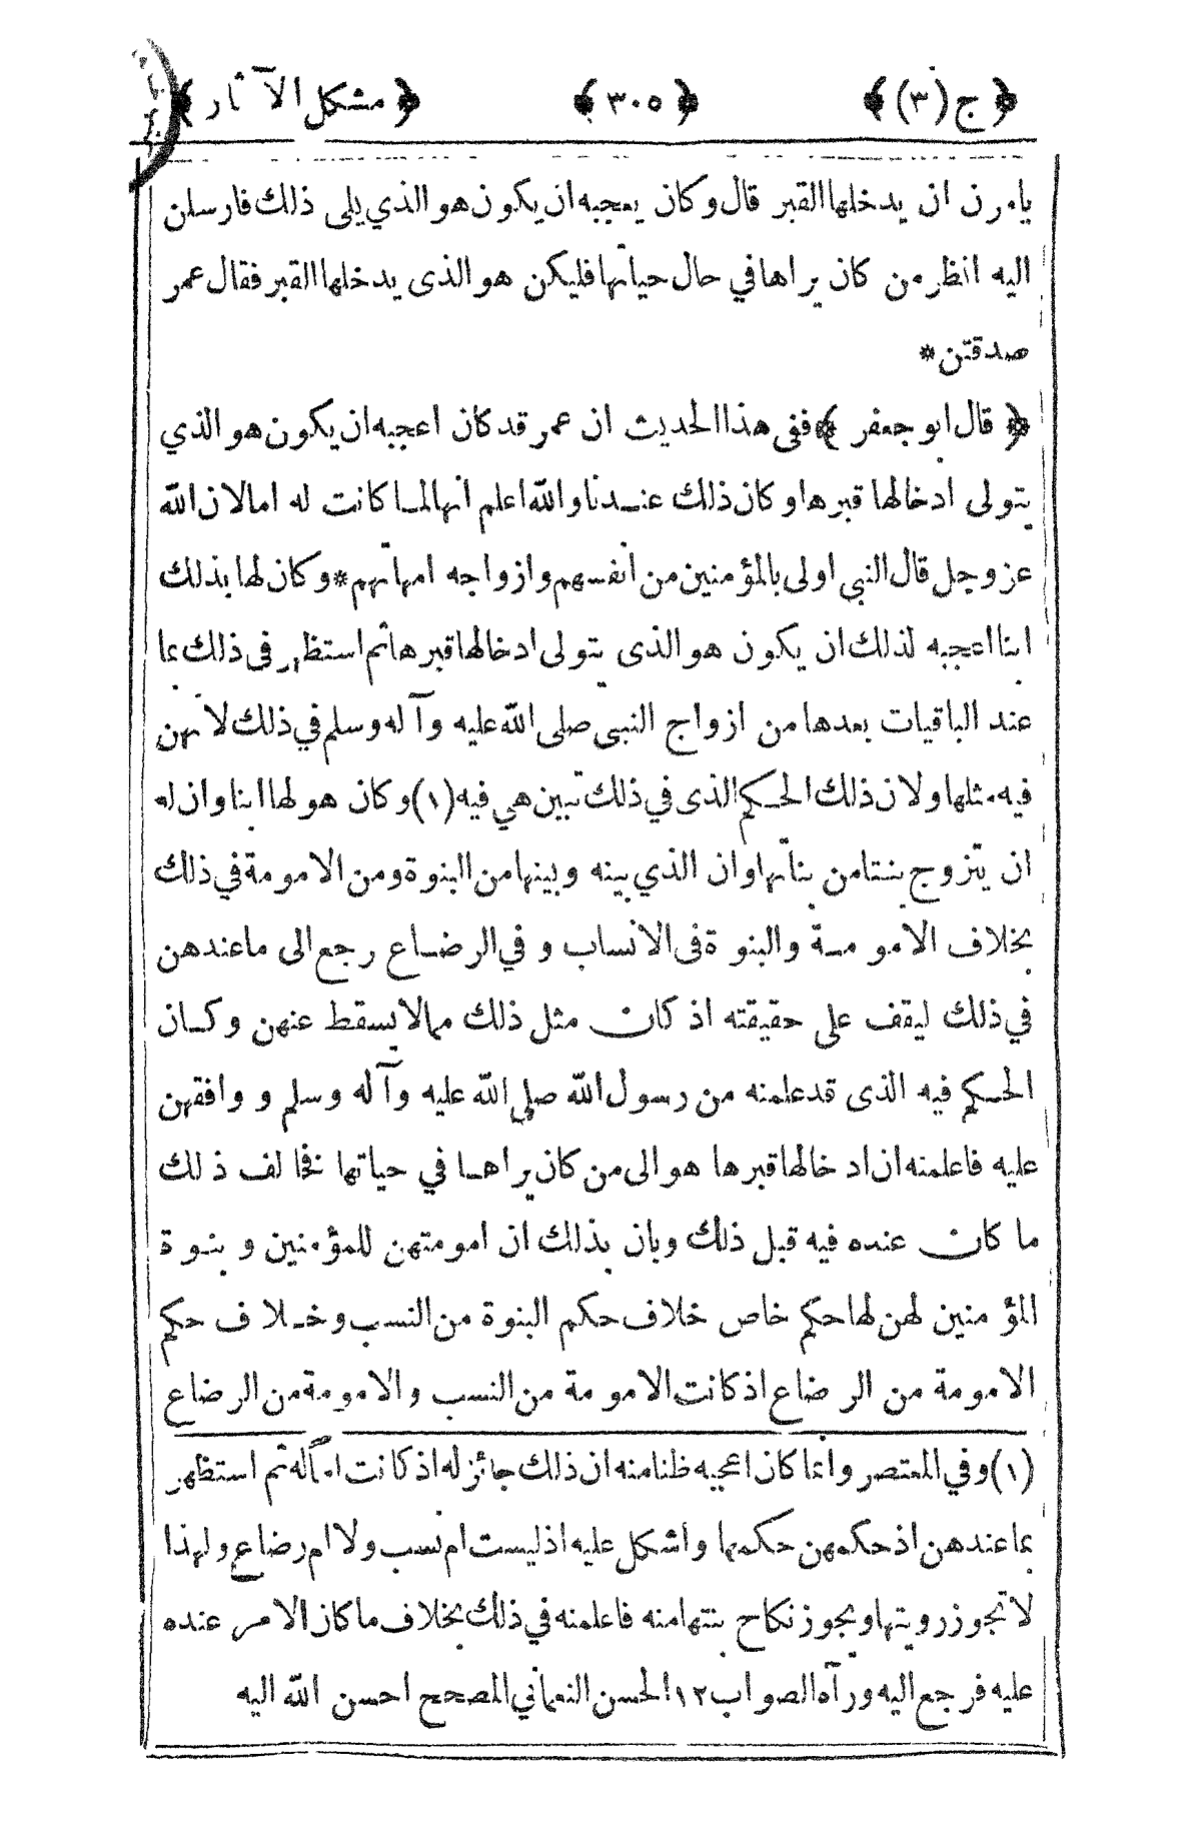 ﴿ ج (٣) ﴾ ﴿ ٣٠٥ ﴾ ﴿ مشكل الآثار ﴾
يامرن ان يدخلها القبر قال وكان يعجبه ان يكون هو الذي يلى ذلك فارسلن
اليه انظر من كان يراها في حال حياتها فليكن هو الذى يدخلها القبر فقال عمر
صدقتن *
﴿ قال ابو جعفر ﴾ ففى هذا الحديث ان عمر قد كان اعجبه ان يكون هو الذي
يتولى ادخالها قبرها وكان ذلك عندنا والله اعلم انها لما كانت له اما لان الله
عز وجل قال النبي اولى بالمؤمنين من انفسهم وازواجه امهاتهم * وكان لها بذلك
ابنا اعجبه لذلك ان يكون هو الذى يتولى ادخالها قبرها ثم استظهر فى ذلك بما
عند الباقيات بعدها من ازواج النبى صلى الله عليه وآله وسلم في ذلك لانهن
فيه مثلها ولان ذلك الحكم الذى في ذلك تبين هي فيه (١) وكان هو لها ابنا وان له
ان يتزوج بنتا من بناتها وان الذي بينه وبينها من البنوة ومن الامومة في ذلك
بخلاف الامومة والبنوة فى الانساب و في الرضاع رجع الى ما عندهن
في ذلك ليقف على حقيقته اذ كان مثل ذلك مما لا يسقط عنهن وكان
الحكم فيه الذى قد علمنه من رسول الله صلى الله عليه وآله وسلم و وافقهن
عليه فاعلمنه ان ادخالها قبرها هو الى من كان يراها في حياتها فخالف ذلك
ما كان عنده فيه قبل ذلك وبان بذلك ان امومتهن للمؤمنين و بنوة
المؤمنين لهن لها حكم خاص خلاف حكم البنوة من النسب وخلاف حكم
الامومة من الرضاع اذ كانت الامومة من النسب والامومة من الرضاع
(١) وفي المعتصر وانما كان اعجبه ظنا منه ان ذلك جائز له اذ كانت اما له ثم استظهر
بما عندهن اذ حكمهن حكمها واشكل عليه اذ ليست ام نسب ولا ام رضاع ولهذا
لا تجوز رويتها ويجوز نكاح بنتها منه فاعلمنه في ذلك بخلاف ما كان الامر عنده
عليه فرجع اليه ورآه الصواب ١٢ الحسن النعماني المصحح احسن الله اليه